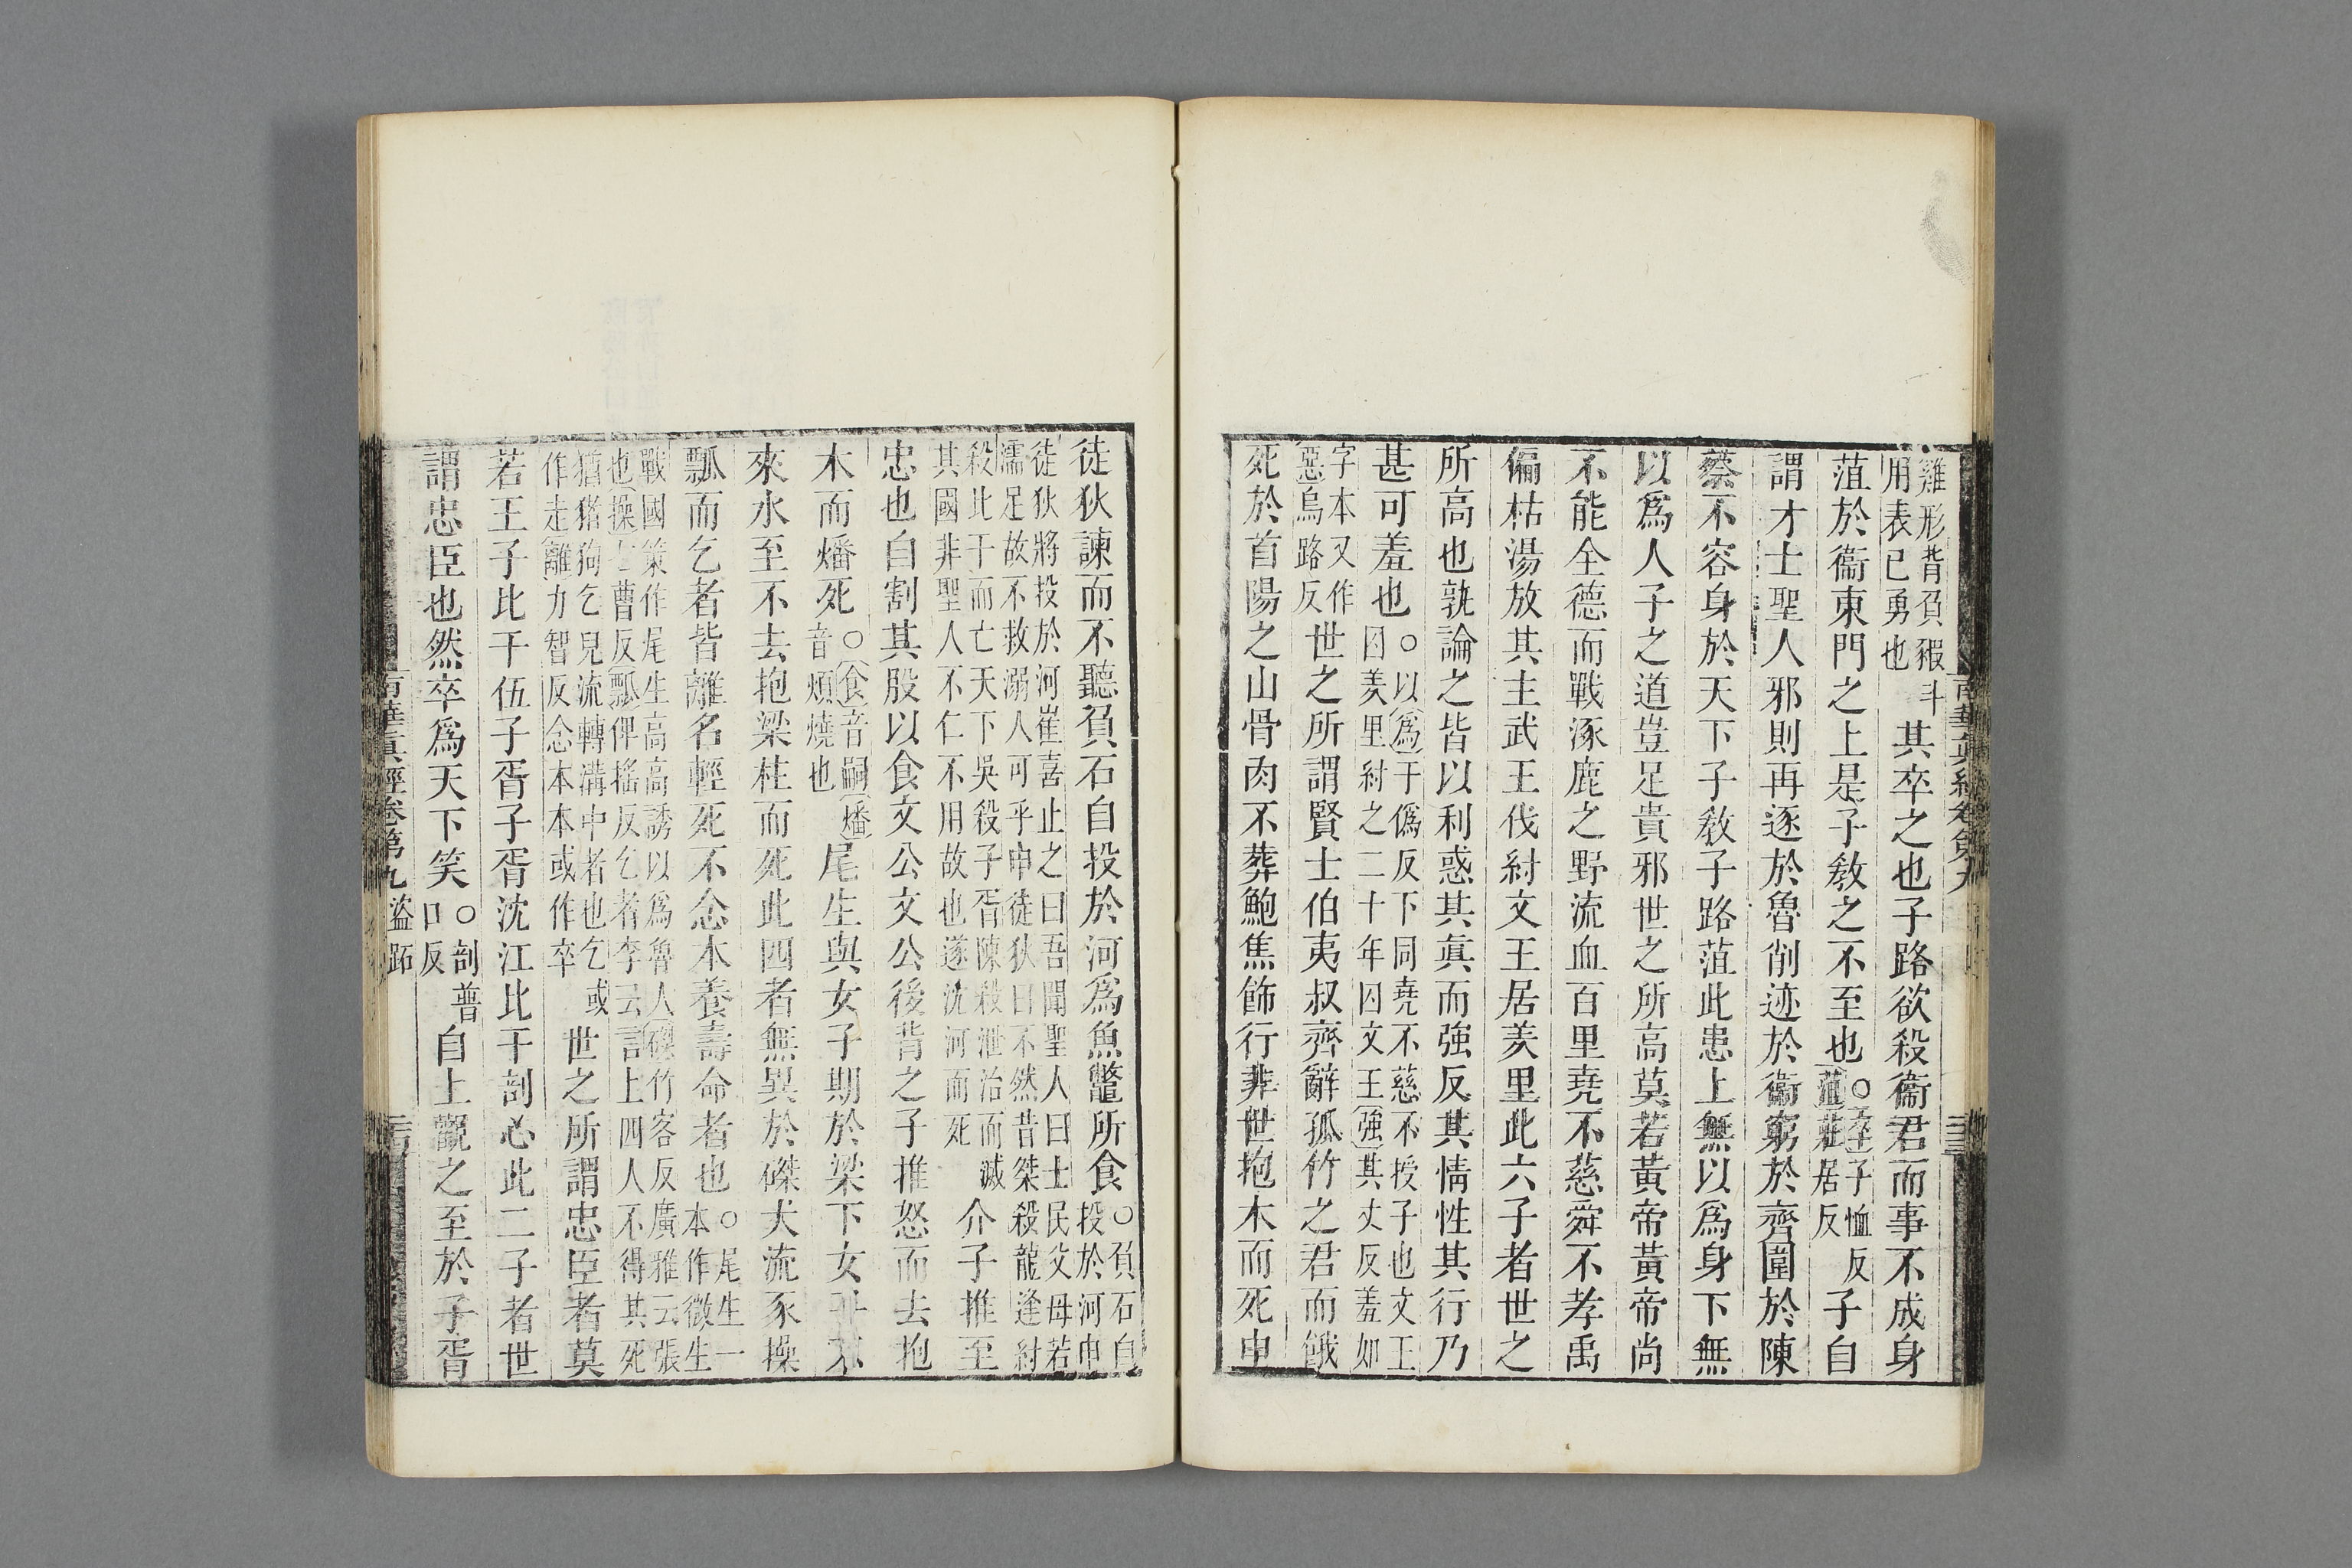 雞形背負豭斗
用表已勇也
其卒之也子路欲殺衞君而事不成身
菹於衞東門之上是子教之不至也
○卒子恤反
菹莊居反
子自
謂才士聖人邪則再逐於魯削迹於衞窮於齊圍於陳
蔡不容身於天下子教子路菹此患上無以爲身下無
以爲人子之道豈足貴邪世之所高莫若黃帝黃帝尚
不能全德而戰涿鹿之野流血百里堯不慈舜不孝禹
偏枯湯放其主武王伐紂文王居羑里此六子者世之
所高也孰論之皆以利惑其眞而強反其情性其行乃
甚可羞也
○以爲于僞反下同堯不慈不授子也文王
囚羑里紂之二十年囚文王強其丈反羞如
字本又作
惡烏路反
世之所謂賢士伯夷叔齊辭孤竹之君而餓
死於首陽之山骨肉不葬鮑焦飾行非世抱木而死申
南華眞經卷第九
三十三
徒狄諫而不聽負石自投於河爲魚鼈所食
○負石自
投於河申
徒狄將投於河崔喜止之曰吾聞聖人曰士民父母若
濡足故不救溺人可乎申徒狄曰不然昔桀殺龍逢紂
殺比干而亡天下吳殺子胥陳殺泄治而滅
其國非聖人不仁不用故也遂沈河而死
介子推至
忠也自割其股以食文公文公後背之子推怒而去抱
木而燔死
○食音嗣燔
音煩燒也
尾生與女子期於梁下女子不
來水至不去抱梁柱而死此四者無異於磔犬流豕操
瓢而乞者皆離名輕死不念本養壽命者也
○尾生一
本作微生
戰國策作尾生高高誘以爲魯人磔竹客反廣雅云張
也操七曹反瓢俾搖反乞者李云言上四人不得其死
猶猪狗乞兒流轉溝中者也乞或
作走離力智反念本本或作卒
世之所謂忠臣者莫
若王子比干伍子胥子胥沈江比干剖心此二子者世
謂忠臣也然卒爲天下笑
○剖普
口反
自上觀之至於子胥
南華眞經卷第九
盜跖